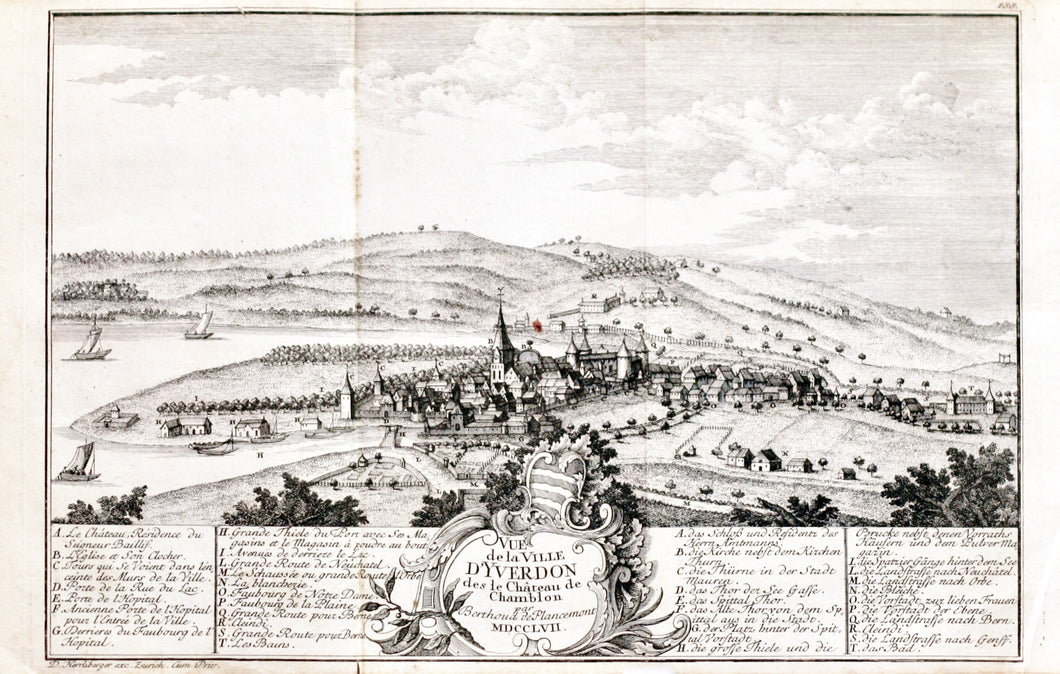 A. Le Château, Résidence du
Seigneur Baillif.
B. L'Eglise et Son Clocher.
C. Tours qui Se Voient dans l'en
ceinte des Murs de la Ville.
D. Porte de la Rue du Lac.
E. Porte de l'Hopital.
F. Ancienne Porte de l'Hopital
pour l'Entrée de la Ville.
G. Derriere du Faubourg de l'
Hopital.
H. Grande Thiele du Port avec Ses Ma
gasins et le Magasin à poudre au bout
I. Avenues de derriere le Lac.
L. Grande Route de Neuchatel.
M. Le Schaussée ou grande Route d'Orbe
N. La Blancherie.
O. Faubourg de Nôtre Dame
P. Faubourg de la Plaine
Q. Grande Route pour Berne
R. Cleindi.
S. Grande Route pour Berne
T. Les Bains.
VUE
de la VILLE
D'YVERDON
des le Château de
Chamblon
par
Berthoud de Plancemont
MDCCLVII.
A. das Schloß und Residentz des
Herrn Amtmanns.
B. die Kirche nebst dem Kirchen
Thurn.
C. die Thürne in der Stadt
Mauren.
D. das Thor der See Gasse.
E. das Spittal Thor.
F. das Alte Thor von dem Sp
ittal aus in die Stadt.
G. der Platz hinter der Spit
tal Vorstadt.
H. die grosse Thiele und die
Brucke nebst denen Vorraths
Häusern und dem Pulver Ma
gazin.
I. die Spatzier Gänge hinter dem See
L. die Landstrasse nach Neuchâtel.
M. die Landstrasse nach Orbe.
N. die Bleiche.
O. die Vorstadt zur lieben Frauen
P. die Vorstadt der Ebene.
Q. die Landstrasse nach Bern.
R. Cleindi.
S. die Landstrasse nach Genff.
T. das Bad.
D. Herrliberger exc. Zurich. Cum Priv.